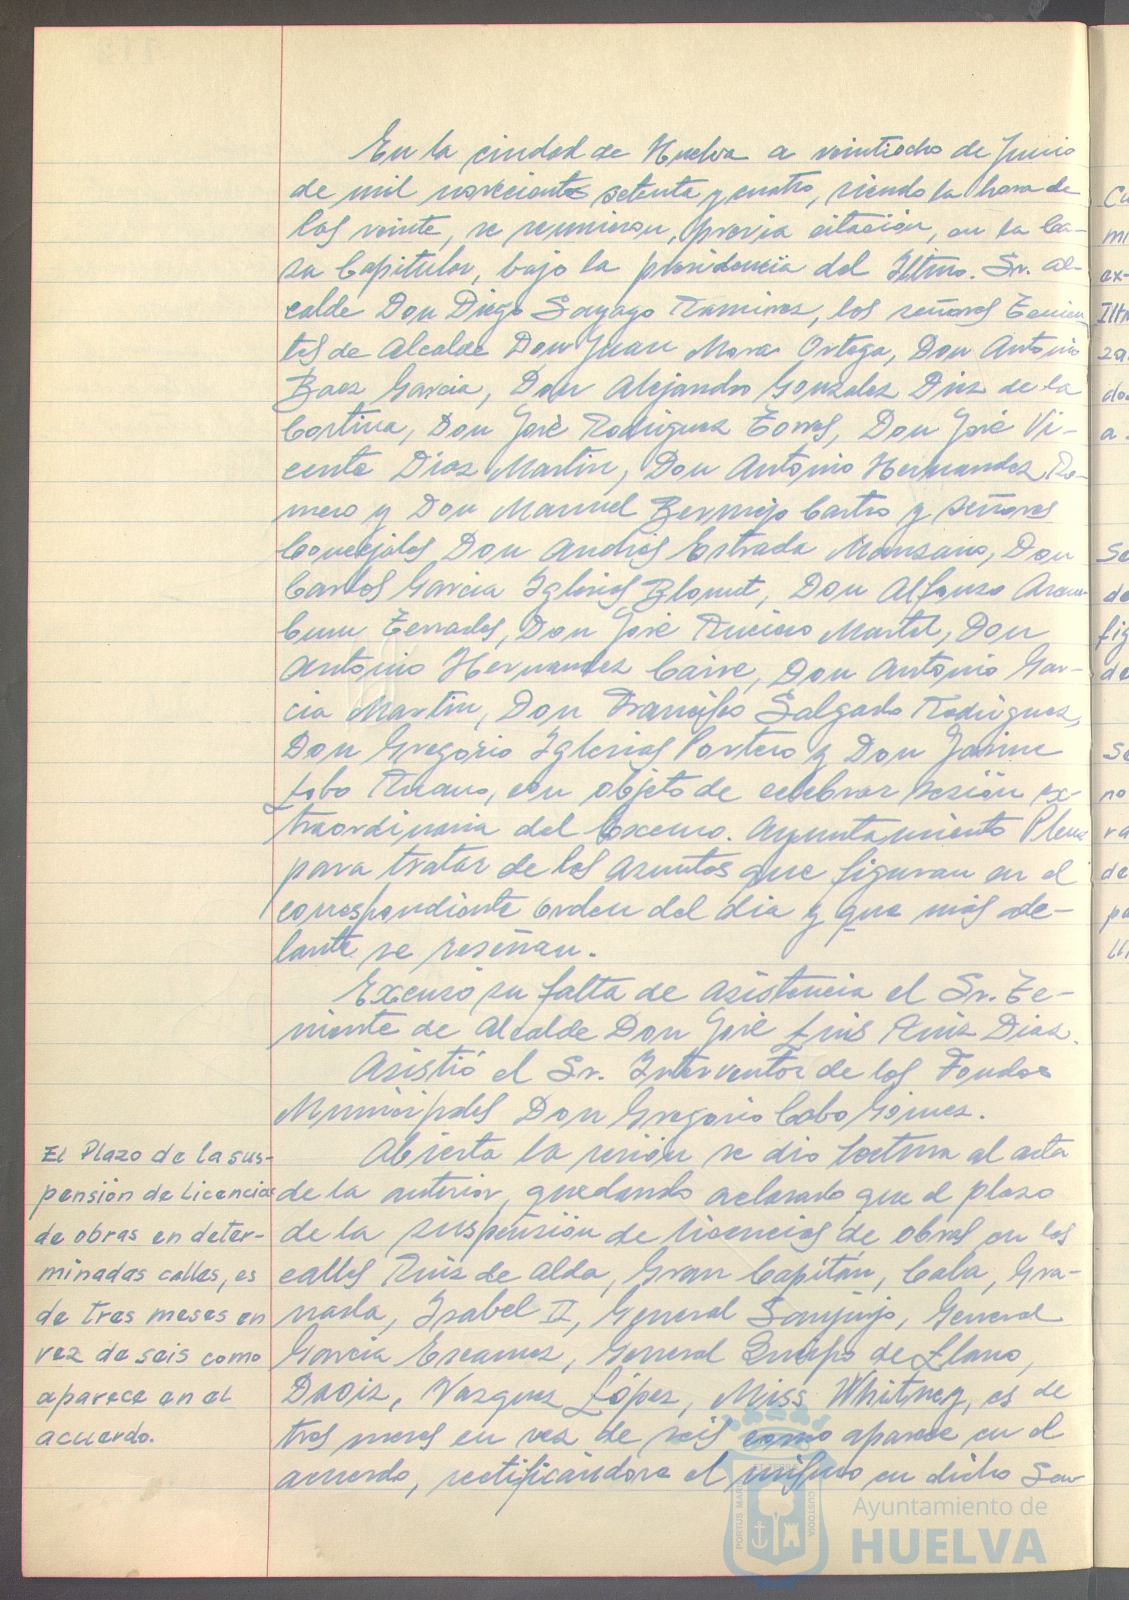 En la ciudad de Huelva a veintiocho de Junio
de mil novecientos setenta y cuatro, siendo la hora de
las veinte, se reunieron, previa citación, en la Ca-
sa Capitular, bajo la presidencia del Iltmo. Sr. Al-
calde Don Diego Sayago Ramirez, los señores Tenien
tes de Alcalde Don Juan Mora Ortega, Don Antonio
Baez Garcia, Don Alejandro Gonzalez Diez de la
Cortina, Don José Rodriguez Torres, Don José Vi-
cente Diaz Martin, Don Antonio Hernandez Ro-
mero y Don Manuel Bermejo Castro y señores
Concejales Don Andrés Estrada Manzano, Don
Carlos Garcia Iglesias Blomut, Don Alfonso Aram-
buru Terrades, Don José Ruciero Martel, Don
Antonio Hernandez Caire, Don Antonio Gar-
cia Martin, Don Francisco Salgado Rodriguez,
Don Gregorio Iglesias Portero y Don Jaime
Lobo Ruano, con objeto de celebrar sesión ex-
traordinaria del Excmo. Ayuntamiento Pleno
para tratar de los asuntos que figuran en el
correspondiente orden del dia y que más ade-
lante se reseñan.
Excusó su falta de asistencia el Sr. Te-
niente de Alcalde Don José Luis Ruiz Diaz.
Asistió el Sr. Interventor de los Fondos
Municipales Don Gregorio Cobo Gómez.
El Plazo de la sus-
pensión de Licencias
de obras en deter-
minadas calles, es
de tres meses en
vez de seis como
aparece en el
acuerdo.
Abierta la sesión se dio lectura al acta
de la anterior, quedando aclarado que el plazo
de la suspensión de licencias de obras en las
calles Ruiz de Alda, Gran Capitán, Cala, Gra-
nada, Isabel II, General Sanjurjo, General
Garcia Escamez, General Queipo de Llano,
Daoiz, Vazquez López, Miss Whitney, es de
tres meses en vez de seis como aparece en el
acuerdo, rectificándose el mismo en dicho sen
PORTUS MARIS
ET TERRAE
CUSTODIA
Ayuntamiento de
HUELVA